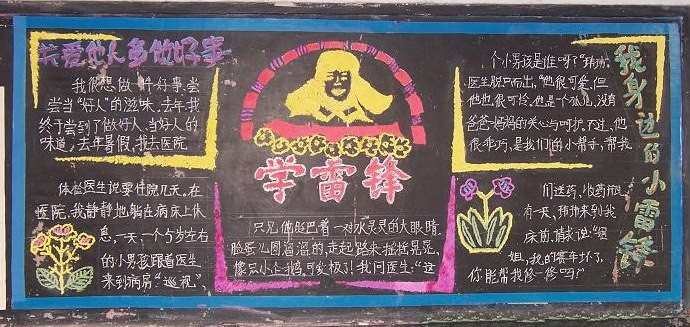 关爱他人多做好事
我很想做一件好事,尝
尝当“好人”的滋味,去年我
终于尝到了做好人、当好人的
味道,去年暑假,我去医院
体检医生说要住院几天。在
医院,我静静地躺在病床上休
息,一天,一个5岁左右
的小男孩跟着医生
来到病房“巡视”,
学雷锋
只见他眨巴着一对水灵灵的大眼睛
脸蛋儿圆溜溜的,走起路来摇摇晃晃,
像只小企鹅,可爱极了!我问医生:“这
个小男孩是谁呀?”
医生脱口而出,“他很可爱,但
他也很可怜,他是一个孤儿,没有
爸爸妈妈的关心与呵护。不过,他
很乖巧,是我们的小帮手,帮我
们送药、收药瓶
有一天,琳琳来到我
床前,请求说:“姐
姐,我的赛车坏了,
你能帮我修一修吗?”
我身边的小雷锋